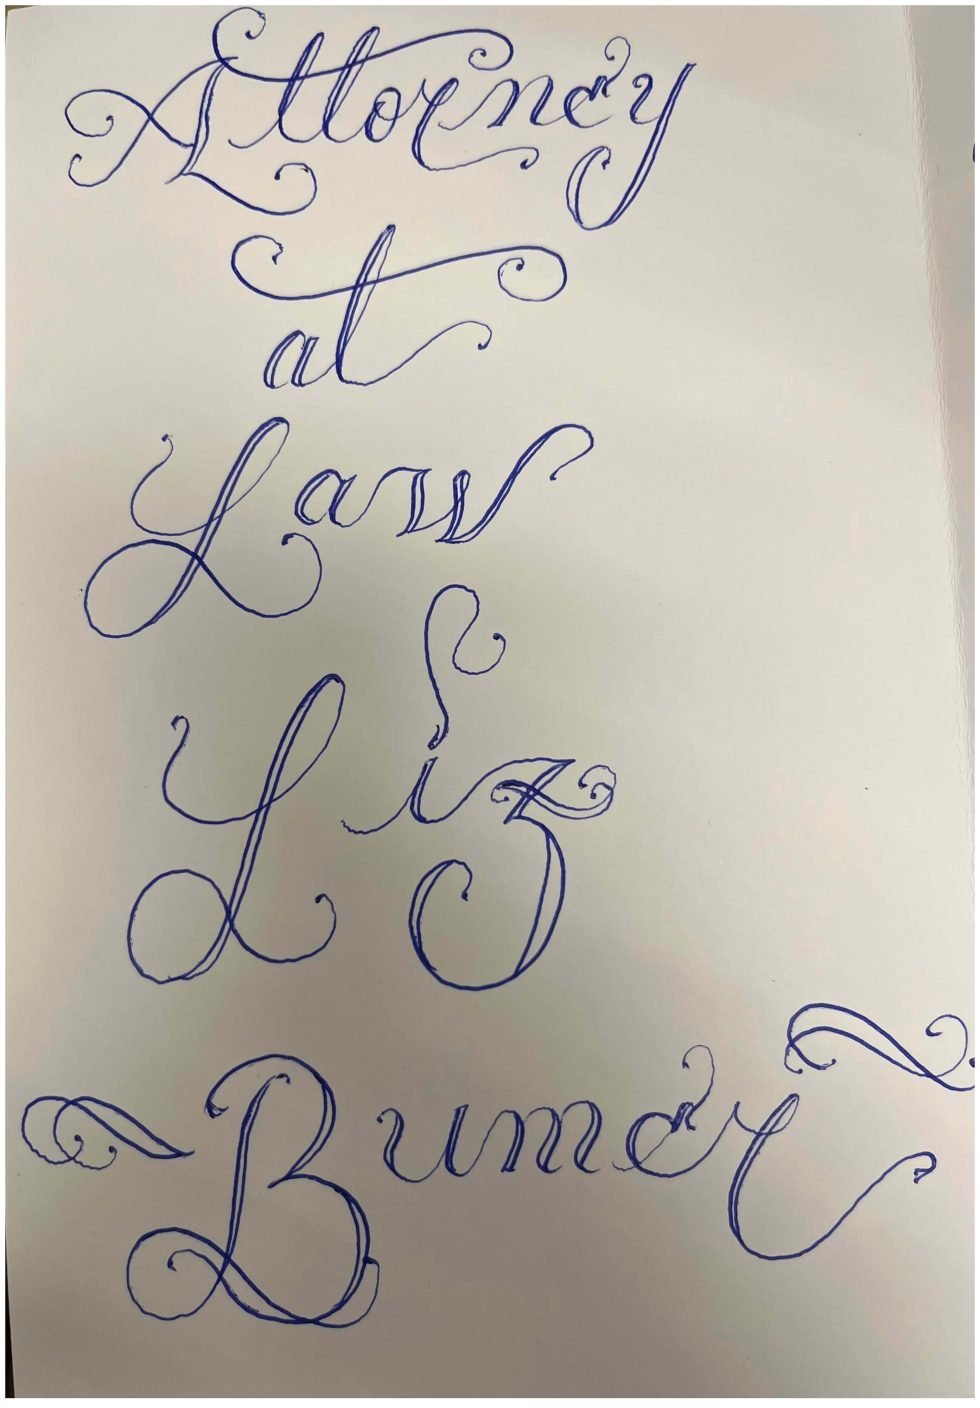 Attorney
at
Law
Liz
Bumer